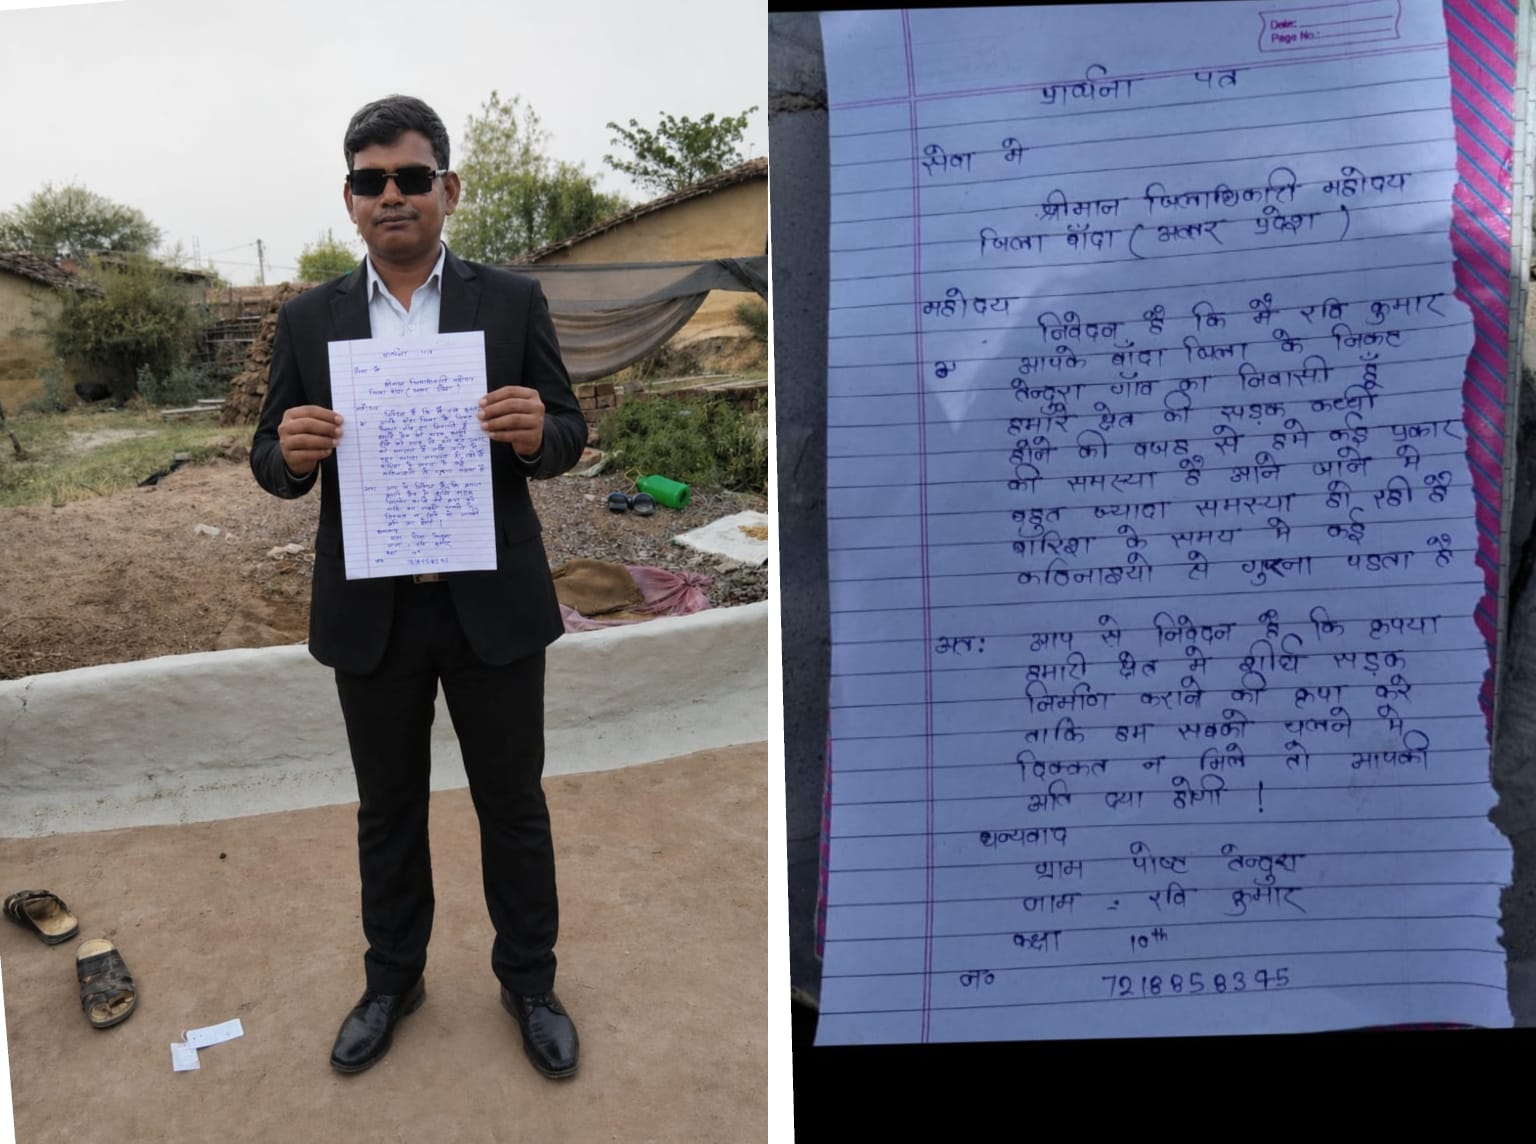 Date:
Page No.:
प्रार्थना पत्र
सेवा मे
श्रीमान जिलाधिकारी महोदय
जिला बाँदा ( उत्तर प्रदेश )
महोदय
निवेदन है कि मै रवि कुमार
आपके बाँदा जिला के निकट
तेन्दुरा गाँव का निवासी हूँ
हमारे क्षेत्र की सड़क कच्ची
होने की वजह से हमे कई प्रकार
की समस्या है आने जाने मे
बहुत ज्यादा समस्या हो रही है
बारिश के समय मे कई
कठिनाइयो से गुजरना पडता है
अतः आप से निवेदन है कि कृपया
हमारी क्षेत्र मे शीर्घ सड़क
निर्माण कराने की कृपा करे
ताकि हम सबको चलने मे
दिक्कत न मिले तो आपकी
अति दया होगी !
धन्यवाद
ग्राम पोस्ट तेन्दुरा
नाम : रवि कुमार
कक्षा 10th
न० 7218858395